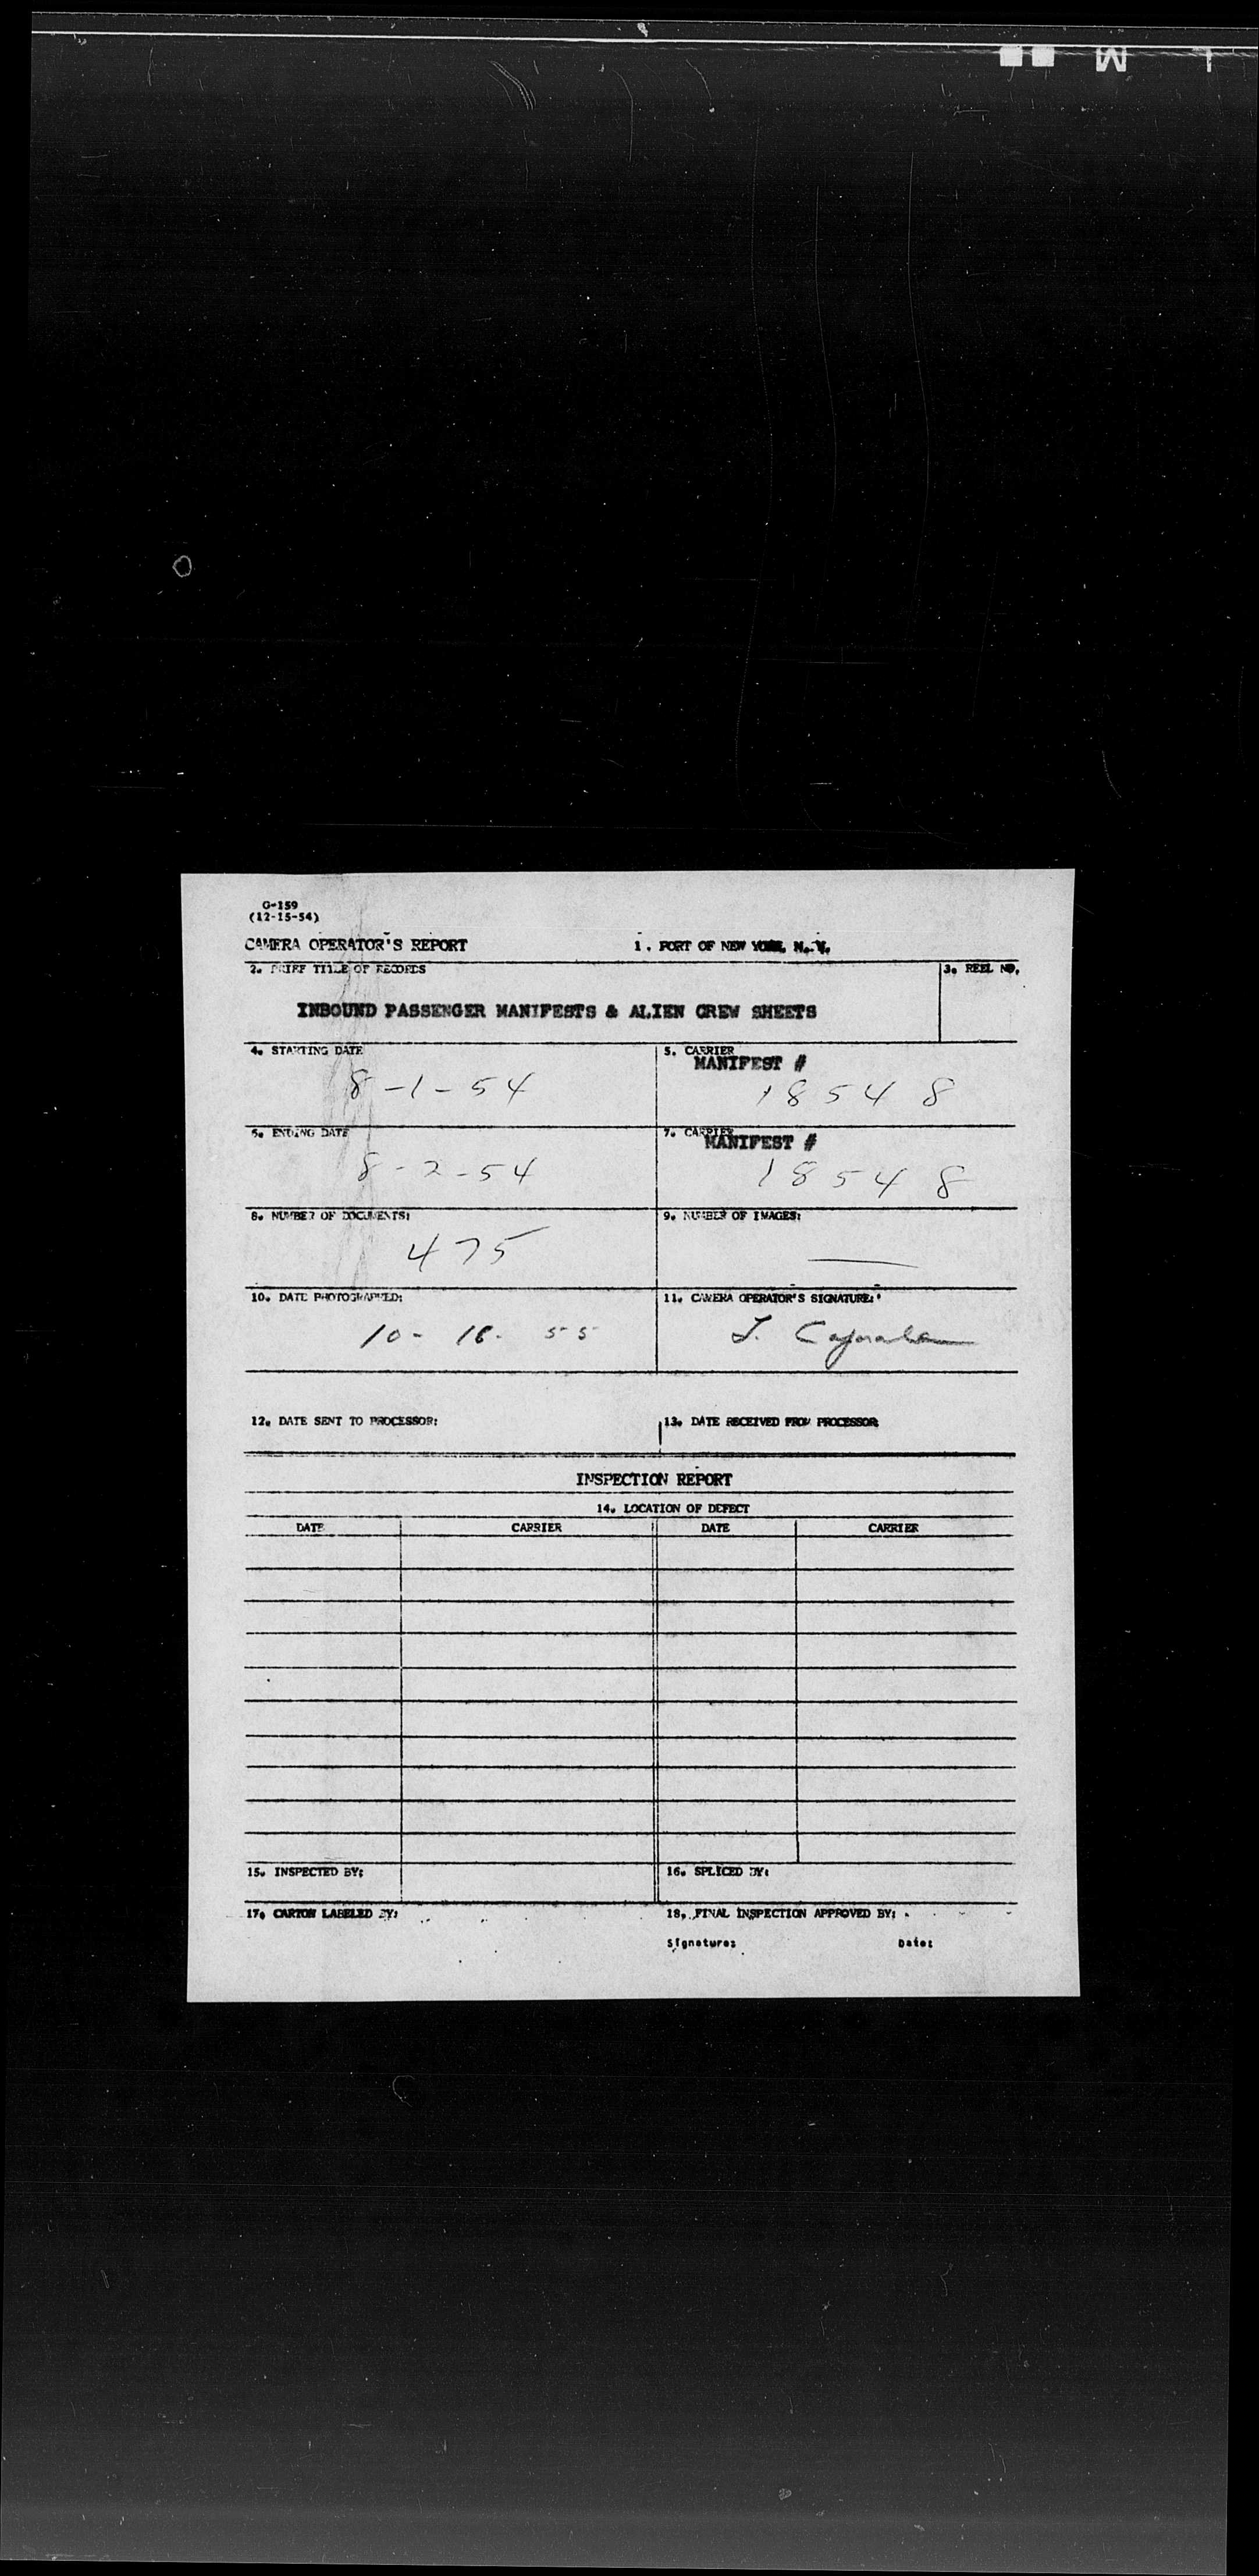 G-159
(12-15-54)
CAMERA OPERATOR'S REPORT
1. PORT OF NEW YORK, N. Y.
2. BRIEF TITLE OF RECORDS
3. REEL NO.
INBOUND PASSENGER MANIFESTS & ALIEN CREW SHEETS
4. STARTING DATE
8-1-54
5. CARRIER
MANIFEST #
18548
6. ENDING DATE
8-2-54
7. CARRIER
MANIFEST #
18548
8. NUMBER OF DOCUMENTS:
475
9. NUMBER OF IMAGES:
10. DATE PHOTOGRAPHED:
10- 18- 55
11. CAMERA OPERATOR'S SIGNATURE:
12. DATE SENT TO PROCESSOR:
13. DATE RECEIVED FROM PROCESSOR
INSPECTION REPORT
14. LOCATION OF DEFECT
DATE CARRIER DATE CARRIER
15. INSPECTED BY:
16. SPLICED BY:
17. CARTON LABELED BY:
18. FINAL INSPECTION APPROVED BY:
Signature: Date: